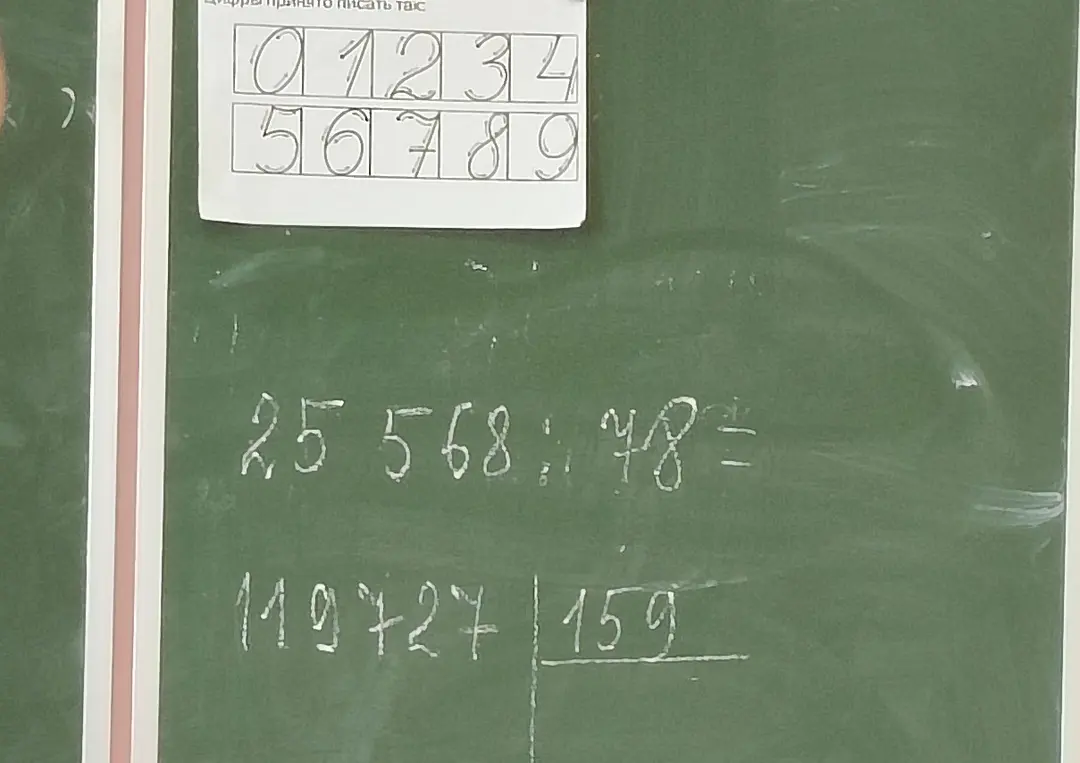 Цифры принято писать так:
0 1 2 3 4
5 6 7 8 9
25 568 : 78 =
119727 | 159